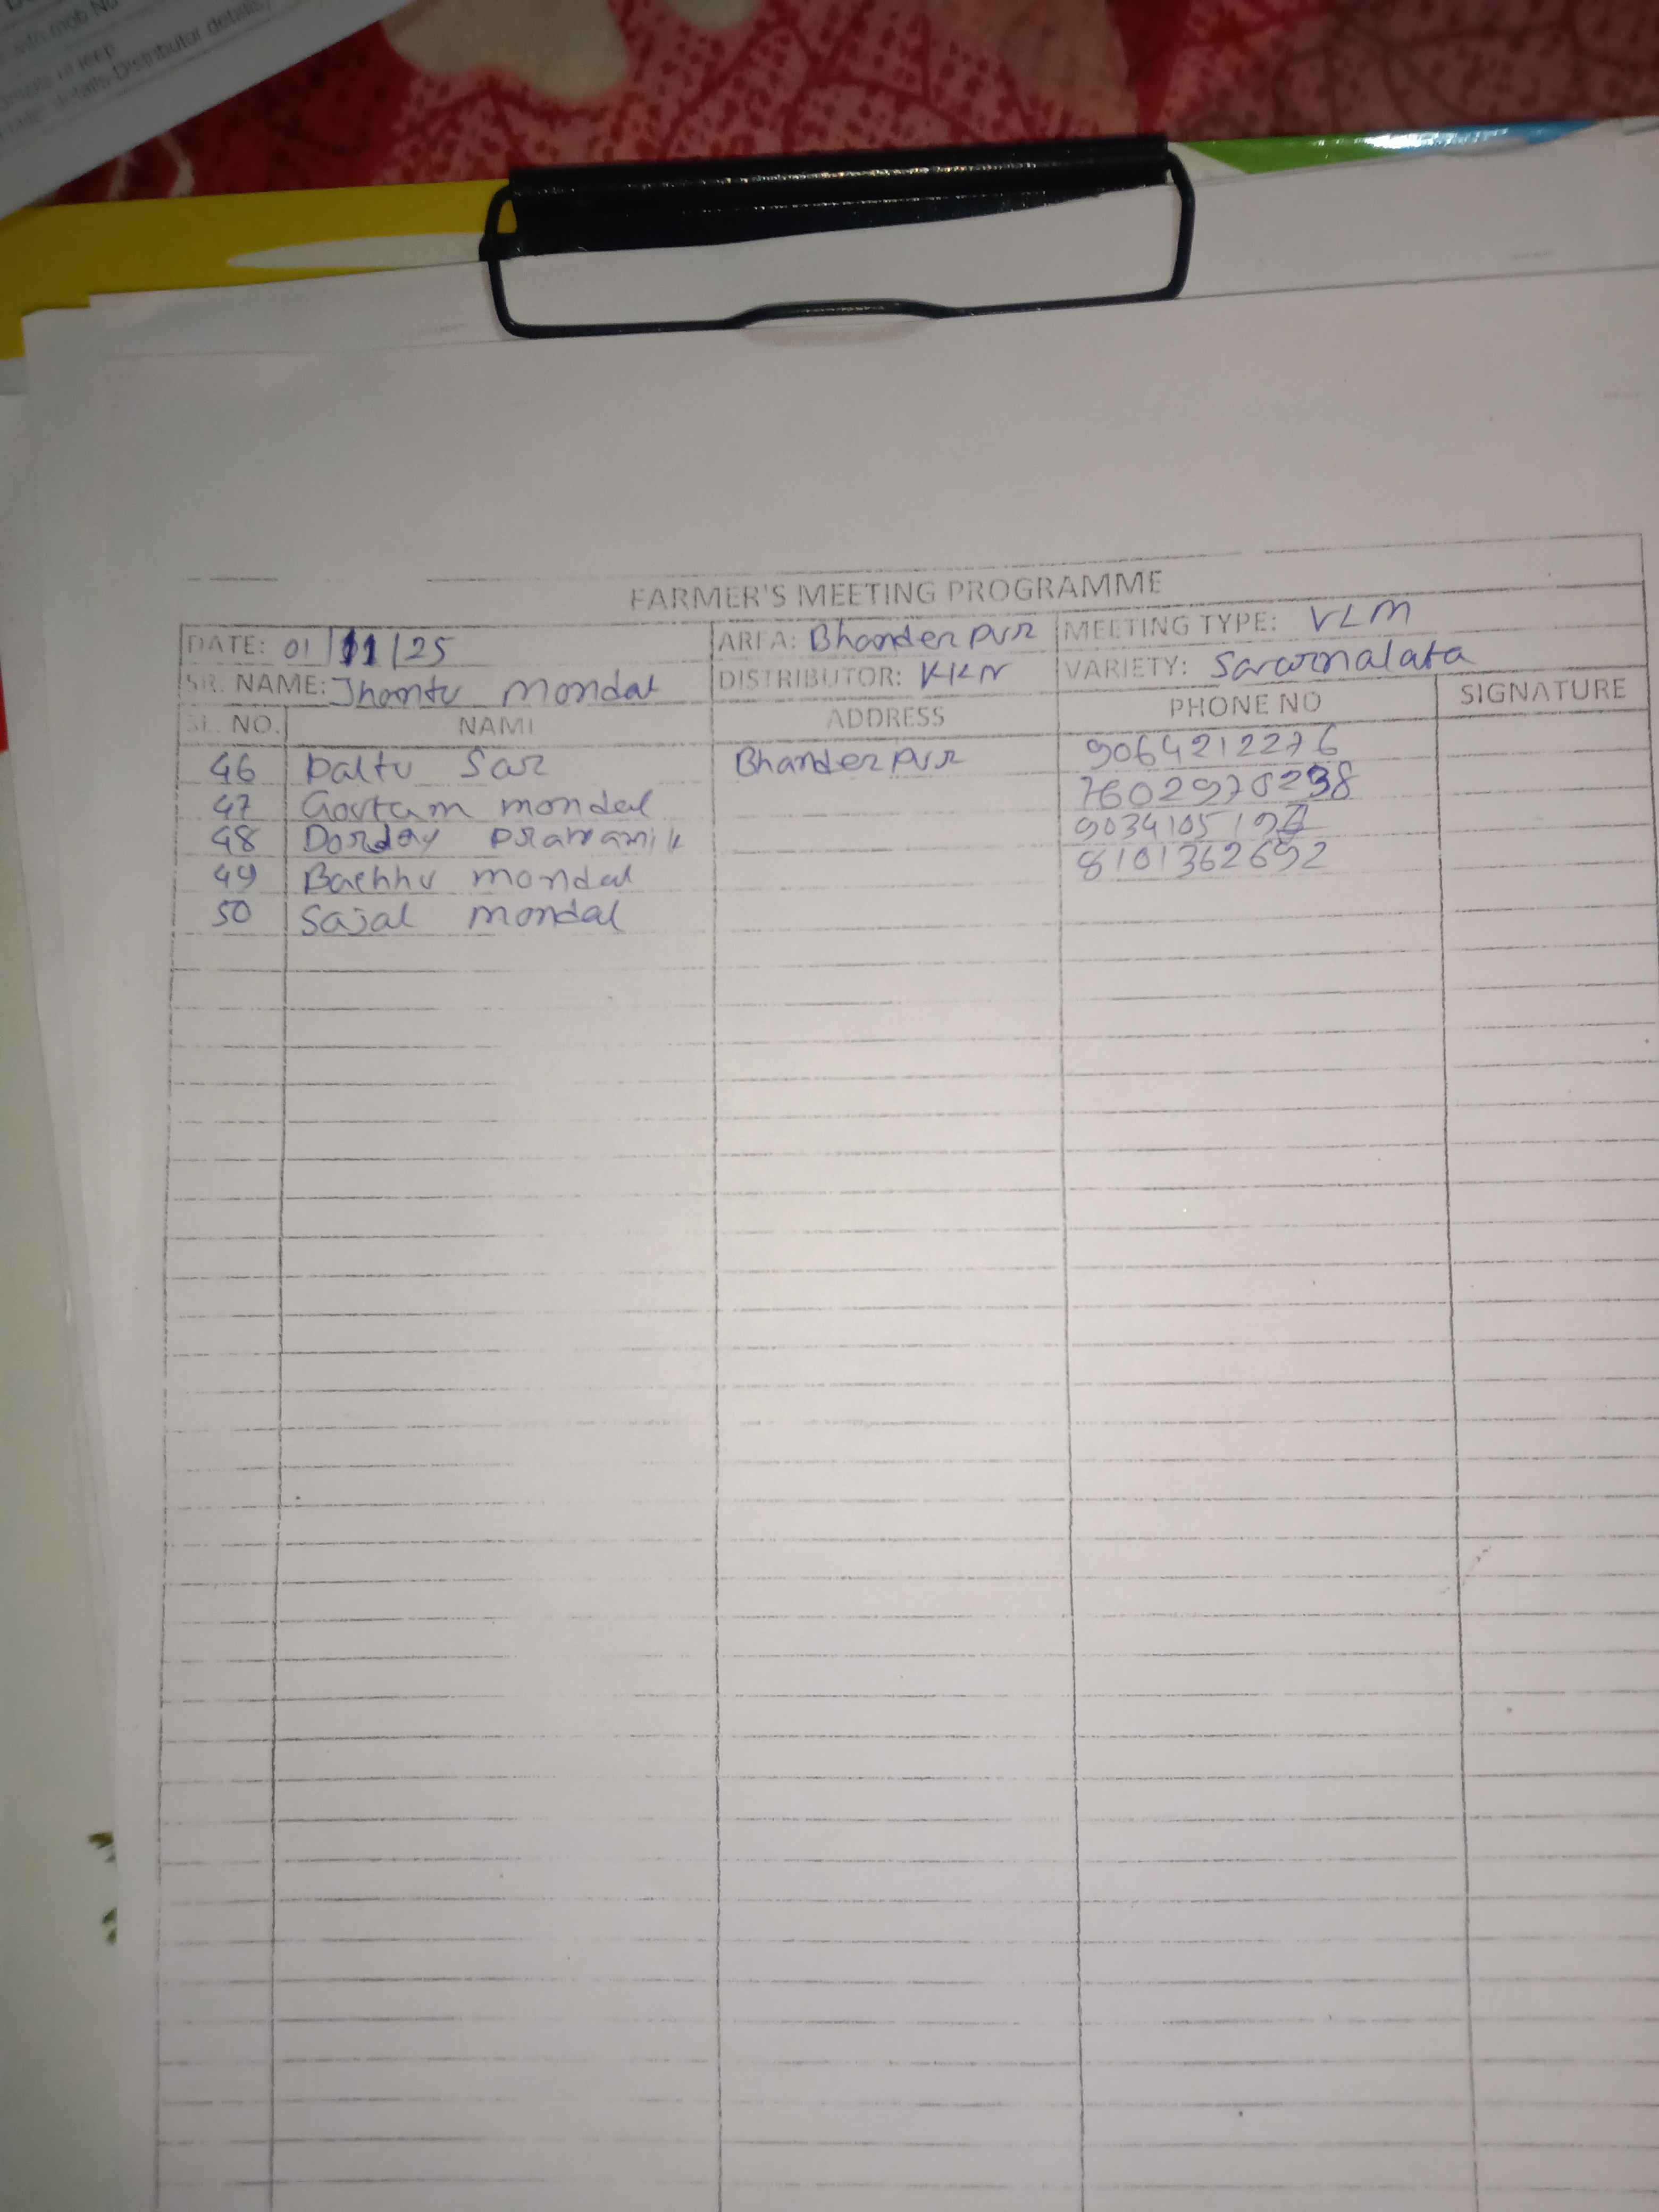 with mob No
Distributor details
FARMER'S MEETING PROGRAMME
DATE: 01/11/25 AREA: Bhanderpur MEETING TYPE: VLM
SR. NAME: Jhantu Mondal DISTRIBUTOR: KKN VARIETY: Sarwrnalata
SL. NO. NAME ADDRESS PHONE NO SIGNATURE
46 Paltu Sar Bhanderpur 9064212276
47 Goutam mondal 7602976238
48 Pramanik
49 Bachhu mondal 8101362692
50 Sajal mondal